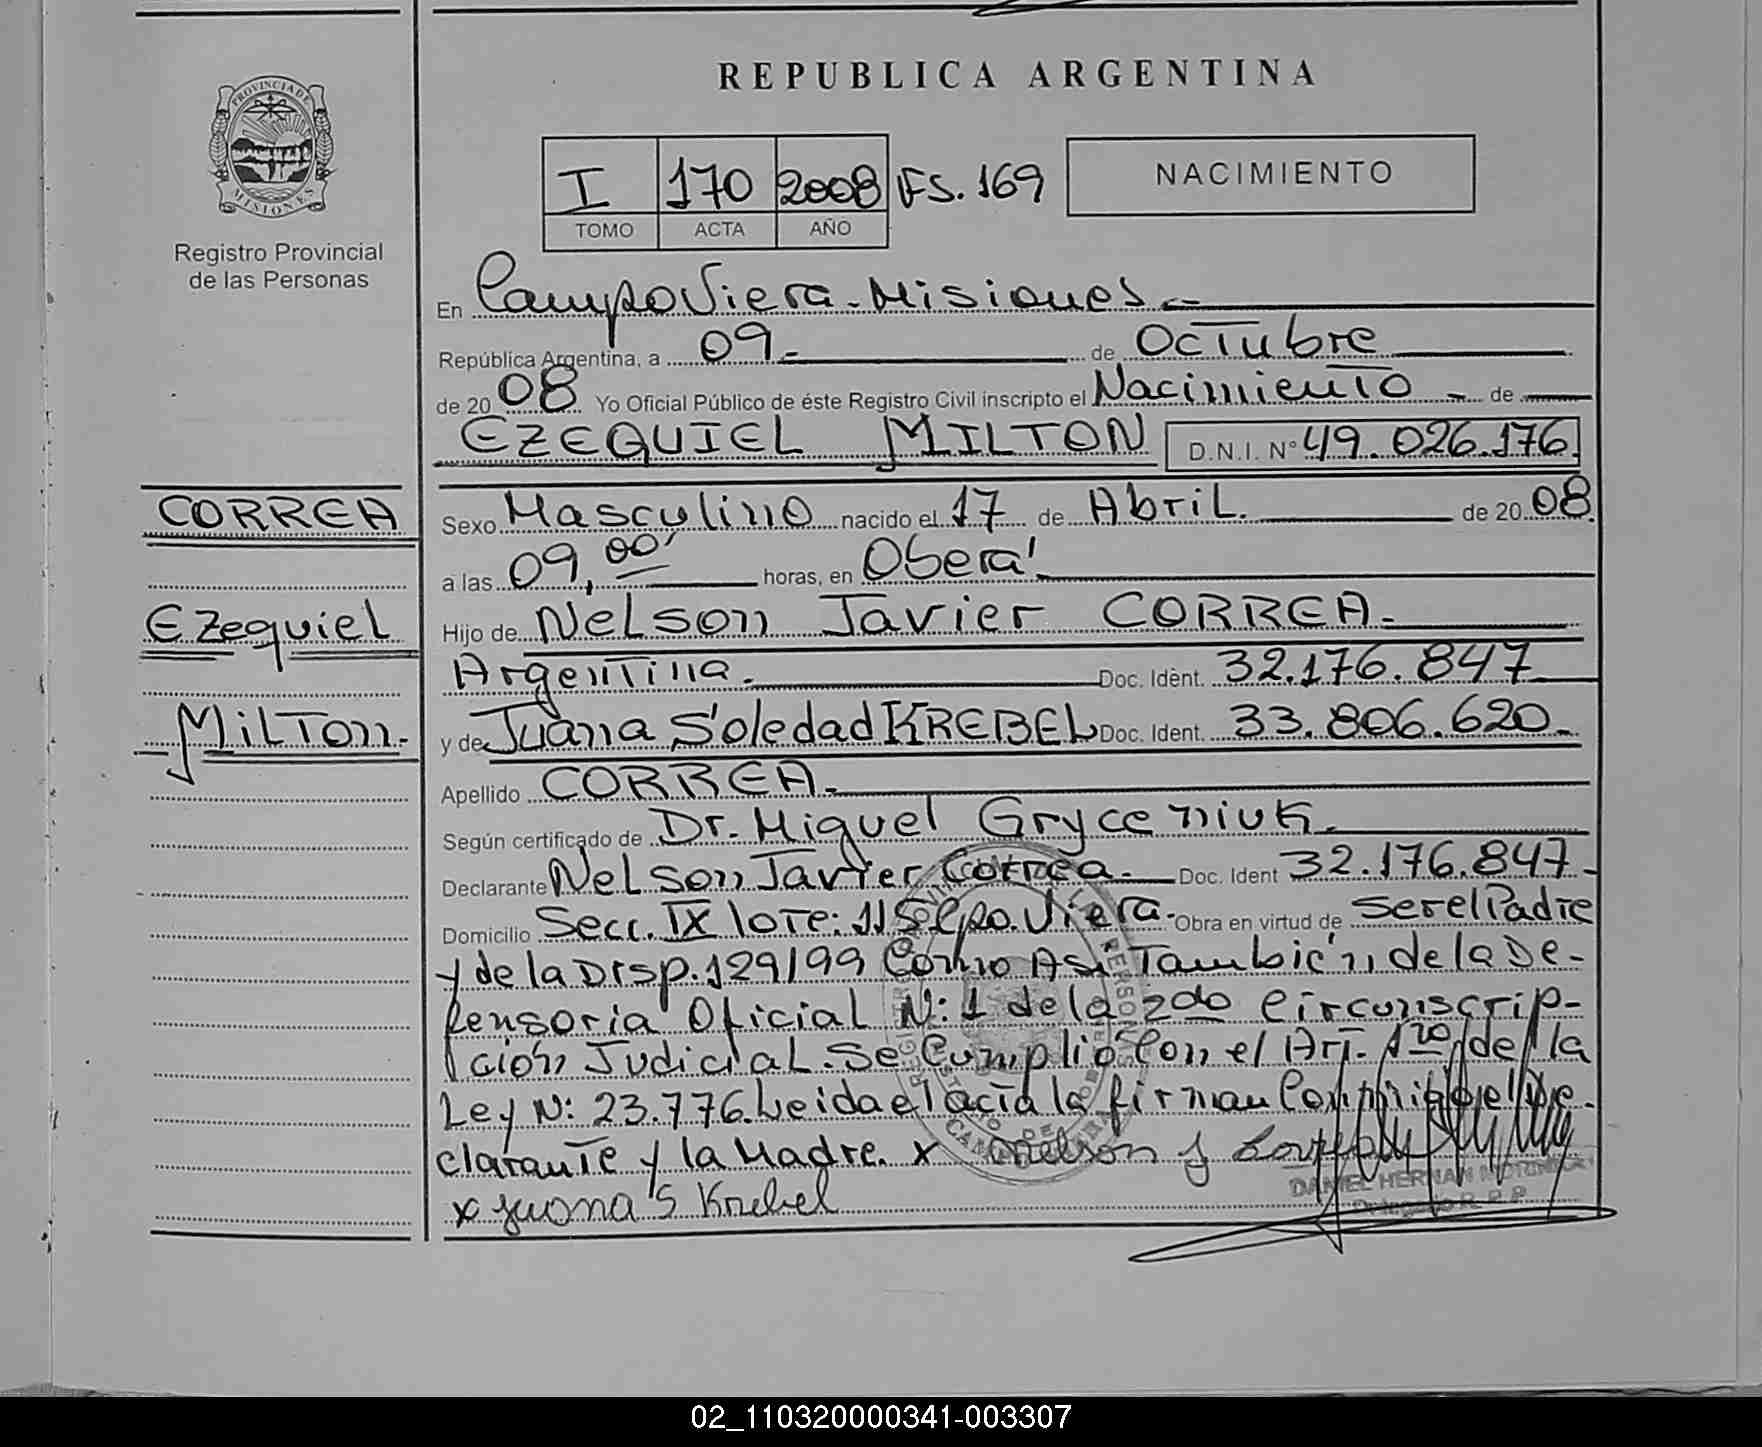 PROVINCIA DE
MISIONES
Registro Provincial
de las Personas
CORREA
Ezequiel
Milton.
REPUBLICA ARGENTINA
I 170 2008 FS. 169
TOMO ACTA AÑO
NACIMIENTO
En Campo Viera - Misiones -
República Argentina, a 09 - de Octubre
de 20 08 Yo Oficial Público de éste Registro Civil inscripto el Nacimiento - de
EZEQUIEL MILTON D.N.I. N° 49.026.176
Sexo Masculino nacido el 17 de Abril. de 20 08
a las 09,00' horas, en Oberá
Hijo de Nelson Javier CORREA -
Argentina. Doc. Ident. 32.176.847
y de Juana Soledad KREBEL Doc. Ident. 33.806.620 -
Apellido CORREA -
Según certificado de Dr. Miguel Gryceniuk -
Declarante Nelson Javier Correa - Doc. Ident 32.176.847 -
Domicilio Secc. IX lote: 115 Cpo. Viera - Obra en virtud de ser el Padre
y de la Disp. 129/99 Como Asi También de la De-
fensoria Oficial N: 1 de la 2do Circunscrip-
ción Judicial. Se Cumplió Con el Art. 1ro de la
Ley N: 23.776. Leida el acta la firman Conmigo el De-
clarante y la Madre. x nelson J Correa
DANIEL HERNAN
Delegado R. P. P.
x Juana S Krebel
02_110320000341-003307